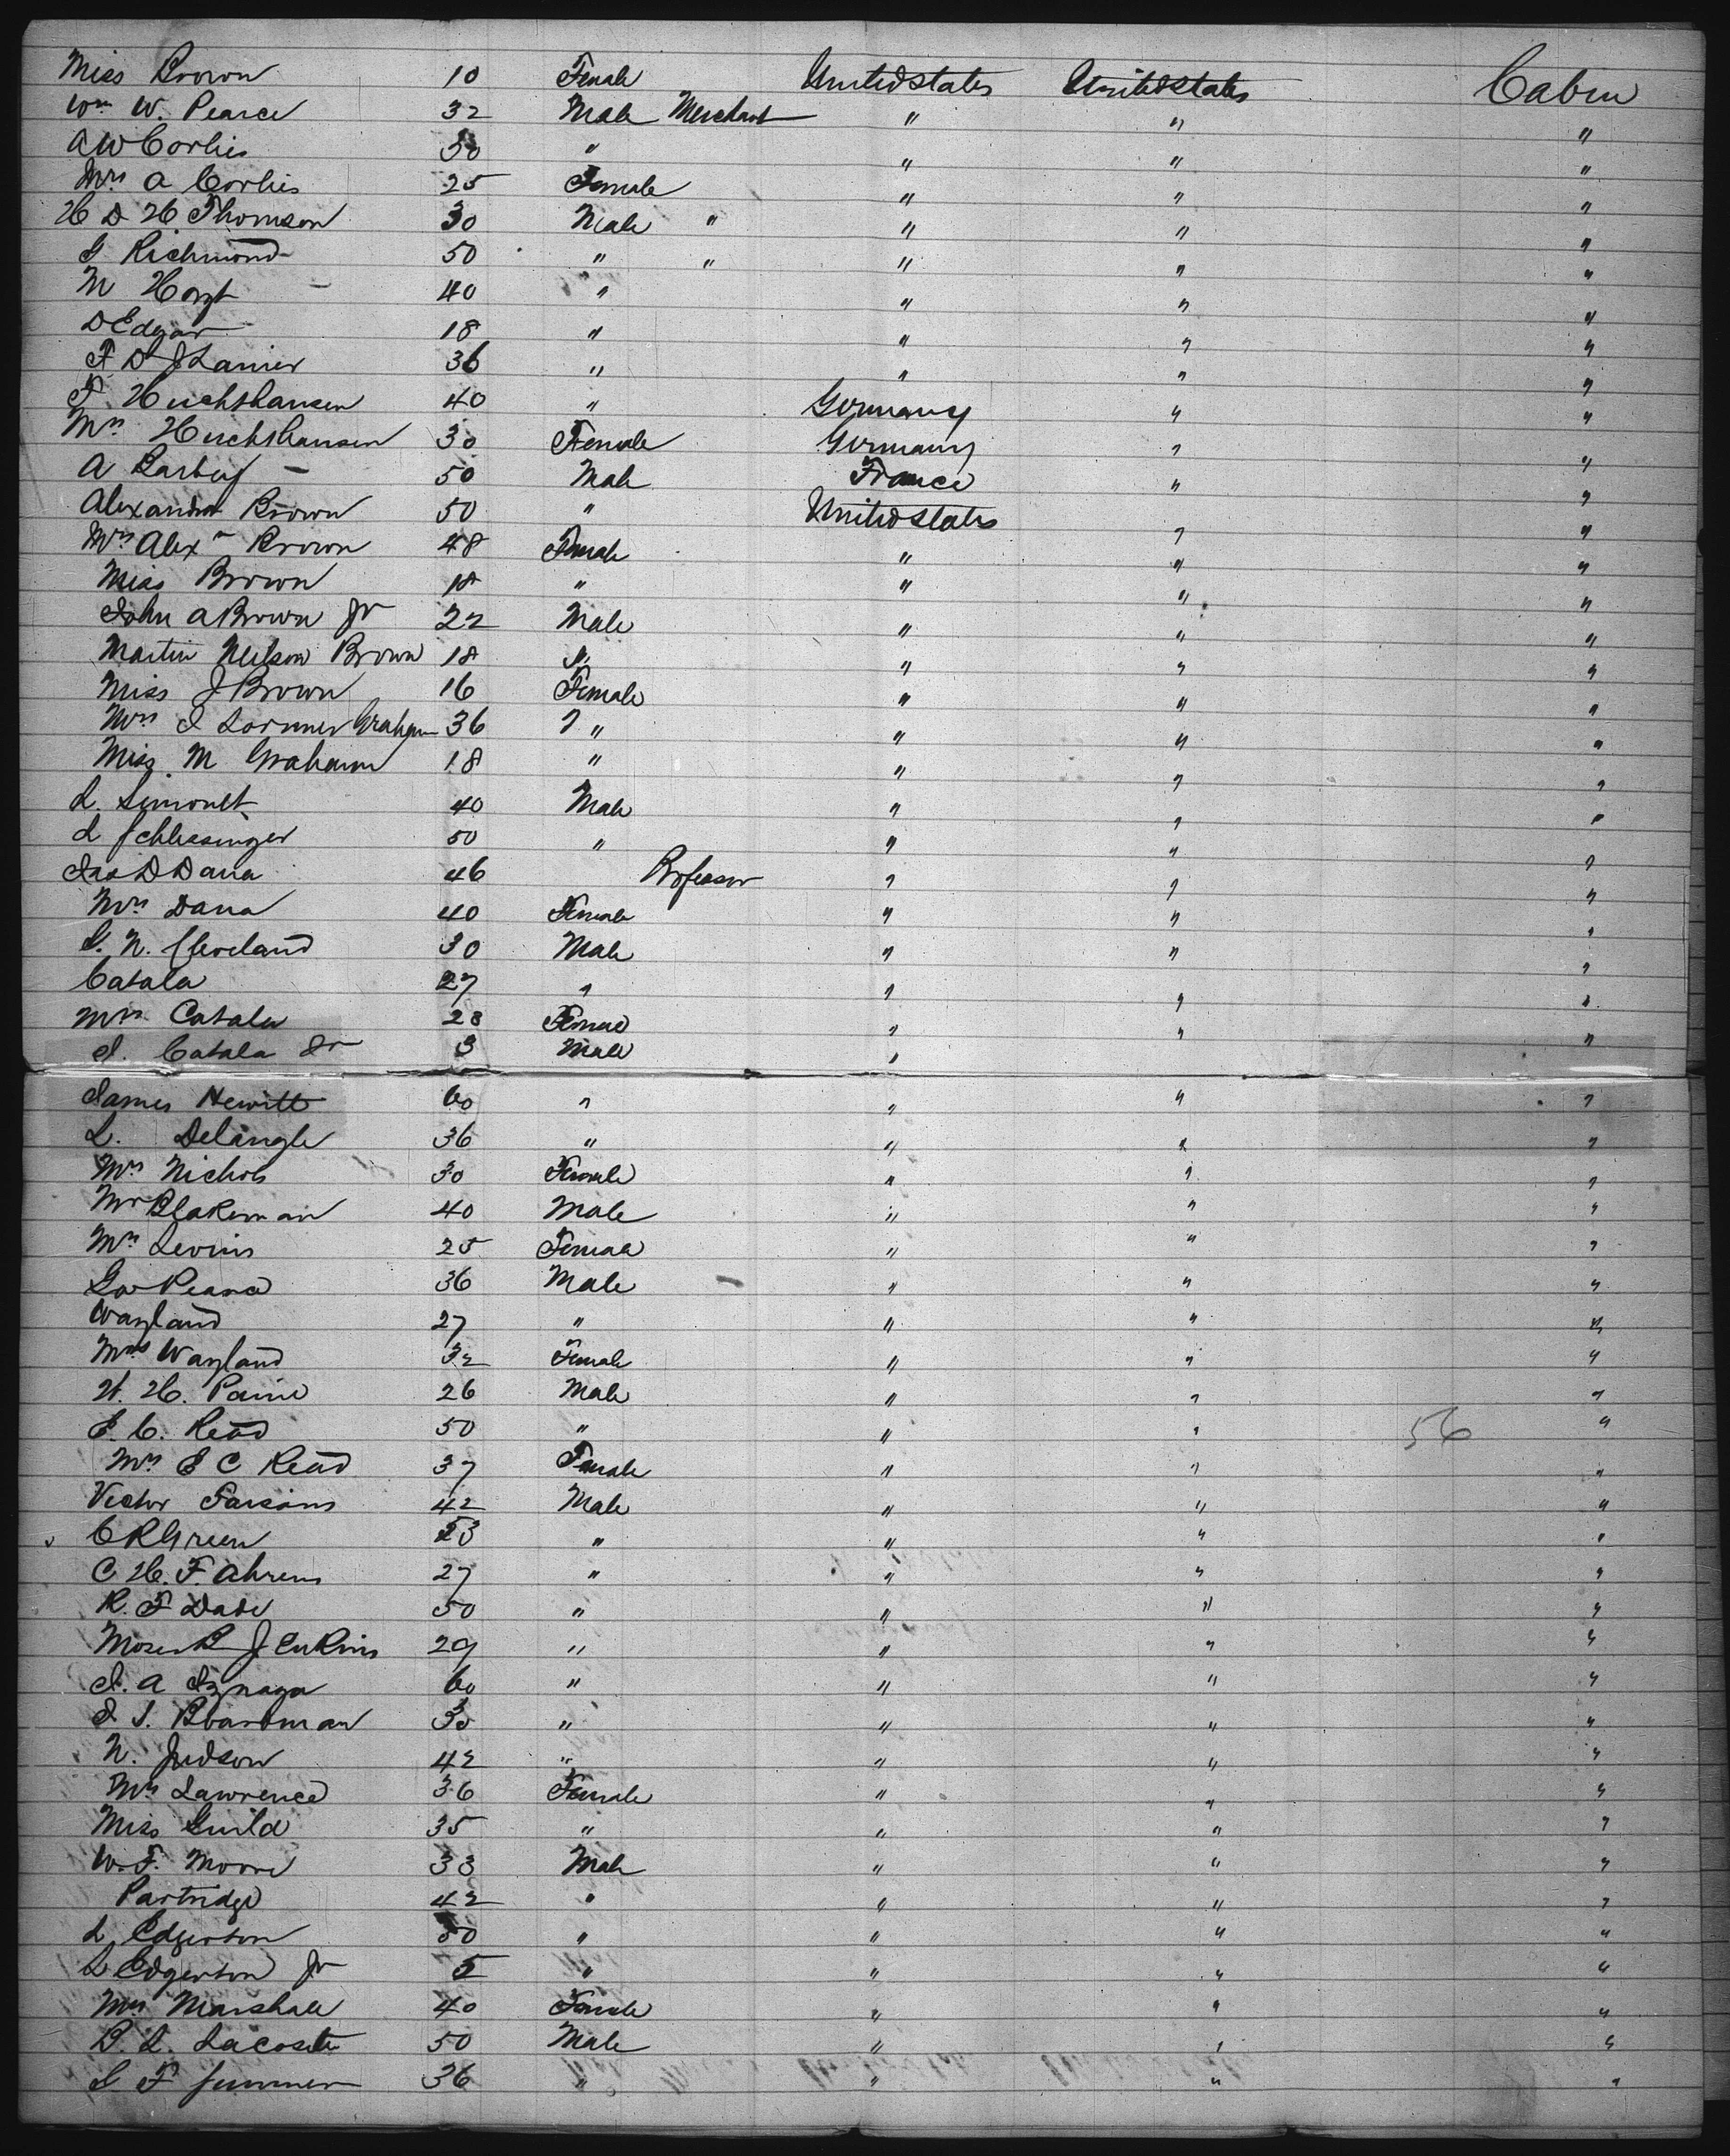 Miss Brown 10 Female United States United States Cabin
Wm W. Pearce 32 Male Merchant " " "
A W Corlies 30 " " " "
Mrs A Corlies 25 Female " " "
H D H Thomson 30 Male " " " "
G Richmond 50 " " " " "
M Hoyt 40 " " " "
D Edgar 18 " " " "
F D J Lanier 36 " " " "
F. Huchshausen 40 " Germany " "
Mrs Huchshausen 30 Female Germany " "
A 50 Male France " "
Alexander Brown 50 " United States " "
Mrs Alexr Brown 48 Female " " "
Miss Brown 18 " " " "
John A Brown Jr 22 Male " " "
Martin Neilson Brown 18 " " " "
Miss J Brown 16 Female " " "
Mrs J Lorimer Graham 36 " " " "
Miss M Graham 18 " " " "
L. Simoult 40 Male " " "
L Schlessinger 50 " " " "
Jas D Dana 46 Professor " " "
Mrs Dana 40 Female " " "
S. N. Cleveland 30 Male " " "
Catala 27 " " " "
Mrs Catala 28 Female " " "
J. Catala Jr 3 Male " " "
James Hewitt 60 " " " "
L. Delangle 36 " " " "
Mrs Nichols 30 Female " " "
Mr Blakeman 40 Male " " "
Mrs Levins 25 Female " " "
Geo Pearce 36 Male " " "
Wayland 27 " " " "
Mrs Wayland 32 Female " " "
H. H. Paine 26 Male " " "
E. C. Read 50 " " " 56 "
Mrs E C Read 37 Female " " "
Victor Parsons 42 Male " " "
C R Green 23 " " " "
C H. F. Ahrens 27 " " " "
R. F Dade 50 " " " "
Moses B Jenkins 29 " " " "
J. A Iznaga 60 " " " "
J. S. Boardman 30 " " " "
N. Judson 42 " " " "
Mrs Lawrence 36 Female " " "
Miss Guild 35 " " " "
W. F. Moore 33 Male " " "
Partridge 42 " " " "
L Edgerton 30 " " " "
L Edgerton Jr 5 " " " "
Mrs Marshall 40 Female " " "
B. L. Lacoste 50 Male " " "
J F Sumner 36 " " " "